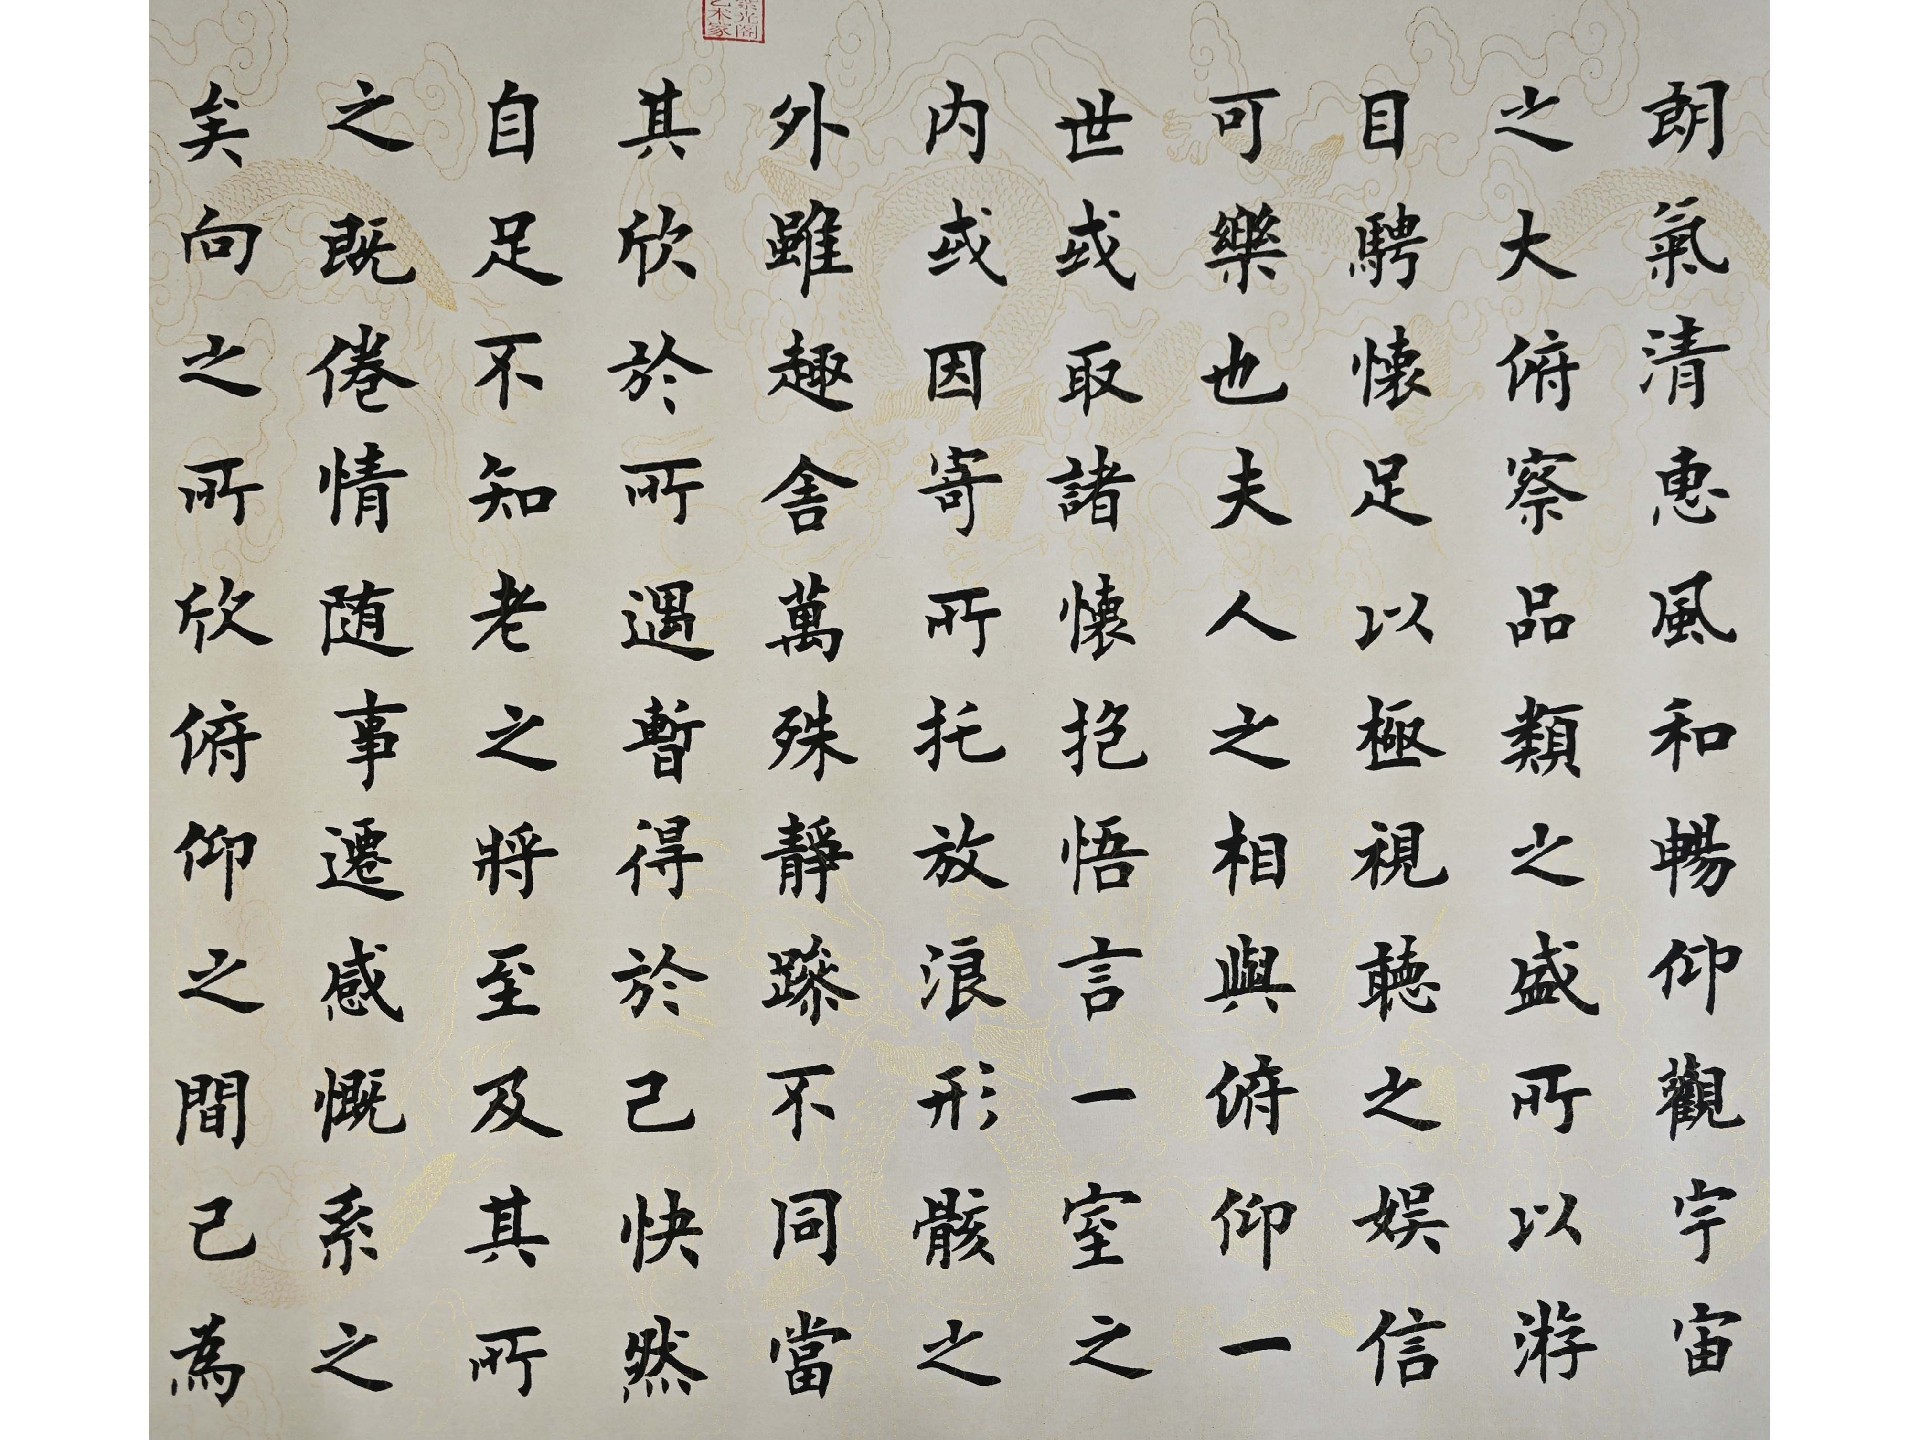 朗氣清惠風和暢仰觀宇宙
之大俯察品類之盛所以游
目騁懷足以極視聽之娱信
可樂也夫人之相與俯仰一
世或取諸懷抱悟言一室之
内或因寄所托放浪形骸之
外雖趣舍萬殊靜躁不同當
其欣於所遇暫得於己快然
自足不知老之將至及其所
之既倦情随事遷感慨系之
矣向之所欣俯仰之間已為